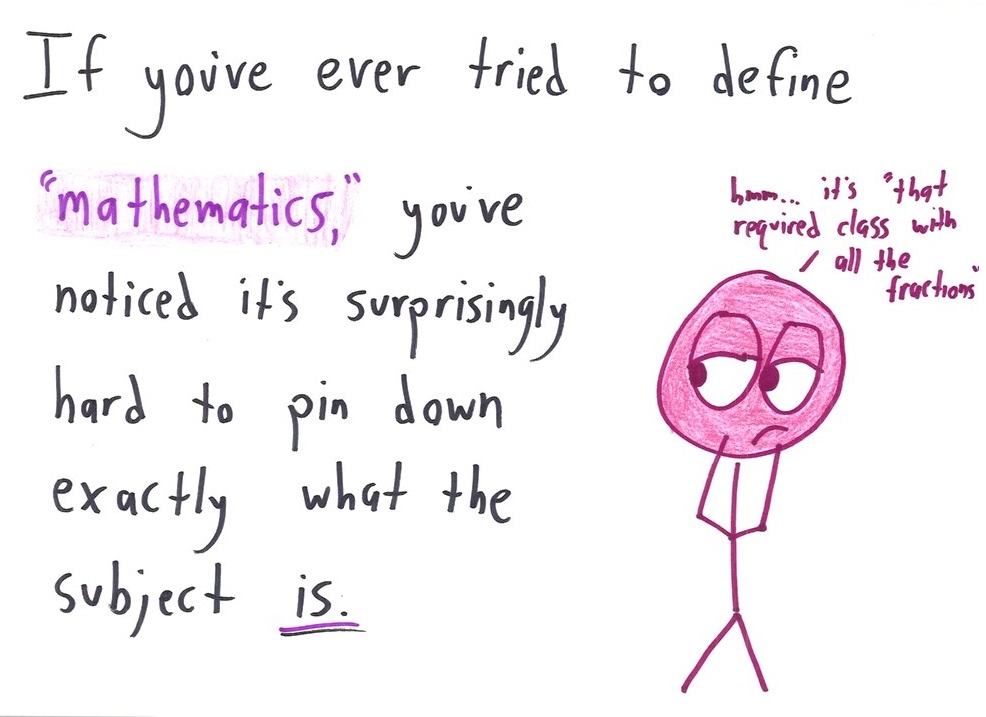 If you've ever tried to define
"mathematics," you've
noticed it's surprisingly
hard to pin down
exactly what the
subject is.
hmm... it's "that
required class with
all the
fractions"